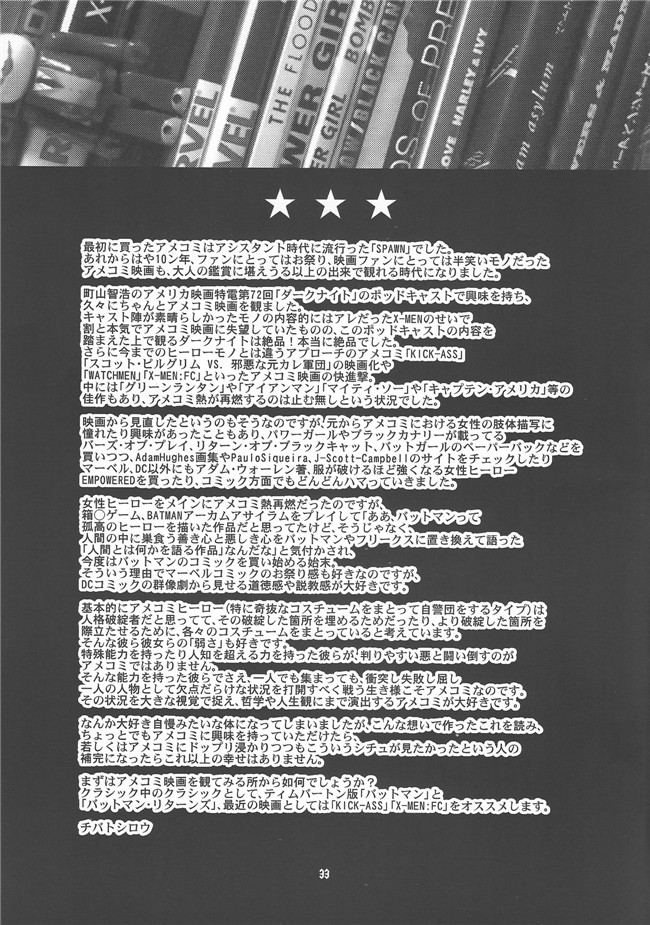 X
MARVEL
MARVEL
THE FLOOD
POWER GIRL
POWER GIRL BOMB
ROW/BLACK CAN
DS OF PREY
LOVE HARLEY & IVY
am asylum
VERS & MADM
★ ★ ★
最初に買ったアメコミはアシスタント時代に流行った「SPAWN」でした。
あれからはや10ン年、ファンにとってはお祭り、映画ファンにとっては半笑いモノだった
アメコミ映画も、大人の鑑賞に堪えうる以上の出来で観れる時代になりました。
町山智浩のアメリカ映画特電第72回「ダークナイト」のポッドキャストで興味を持ち、
久々にちゃんとアメコミ映画を観ました。
キャスト陣が素晴らしかったモノの内容的にはアレだったX-MENのせいで、
割と本気でアメコミ映画に失望していたものの、このポッドキャストの内容を
踏まえた上で観るダークナイトは絶品！本当に絶品でした。
さらに今までのヒーローモノとは違うアプローチのアメコミ「KICK-ASS」
「スコット・ピルグリム VS. 邪悪な元カレ軍団」の映画化や
「WATCHMEN」「X-MEN:FC」といったアメコミ映画の快進撃。
中には「グリーンランタン」や「アイアンマン」「マイティ・ソー」や「キャプテン・アメリカ」等の
佳作もあり、アメコミ熱が再燃するのは止む無しという状況でした。
映画から見直したというのもそうなのですが、元からアメコミにおける女性の肢体描写に
憧れたり興味があったこともあり、パワーガールやブラックカナリーが載ってる
バーズ・オブ・プレイ、リターン・オブ・ブラックキャット、バットガールのペーパーバックなどを
買いつつ、AdamHughes画集やPauloSiqueira、J-Scott-Campbellのサイトをチェックしたり
マーベル、DC以外にもアダム・ウォーレン著、服が破けるほど強くなる女性ヒーロー
EMPOWEREDを買ったり、コミック方面でもどんどんハマっていきました。
女性ヒーローをメインにアメコミ熱再燃だったのですが、
箱○ゲーム、BATMANアーカムアサイラムをプレイして「ああ、バットマンって
孤高のヒーローを描いた作品だと思ってたけど、そうじゃなく、
人間の中に巣食う善き心と悪しき心をバットマンやフリークスに置き換えて語った
「人間とは何かを語る作品」なんだな」と気付かされ、
今度はバットマンのコミックを買い始める始末。
そういう理由でマーベルコミックのお祭り感も好きなのですが、
DCコミックの群像劇から見せる道徳感や説教感が大好きです。
基本的にアメコミヒーロー（特に奇抜なコスチュームをまとって自警団をするタイプ）は
人格破綻者だと思ってて、その破綻した箇所を埋めるためだったり、より破綻した箇所を
際立たせるために、各々のコスチュームをまとっていると考えています。
そんな彼ら彼女らの「弱さ」も好きです。
特殊能力を持ったり人知を超える力を持った彼らが、判りやすい悪と闘い倒すのが
アメコミではありません。
そんな能力を持った彼らでさえ、一人でも集まっても、衝突し失敗し屈し、
一人の人物として欠点だらけな状況を打開すべく戦う生き様こそアメコミなのです。
その状況を大きな視覚で捉え、哲学や人生観にまで演出するアメコミが大好きです。
なんか大好き自慢みたいな体になってしまいましたが、こんな想いで作ったこれを読み、
ちょっとでもアメコミに興味を持っていただけたら、
若しくはアメコミにドップリ浸かりつつもこういうシチュが見たかったという人の
補完になったらこれ以上の幸せはありません。
まずはアメコミ映画を観てみる所から如何でしょうか？
クラシック中のクラシックとして、ティムバートン版「バットマン」と
「バットマン・リターンズ」、最近の映画としては「KICK-ASS」「X-MEN:FC」をオススメします。
チバトシロウ
33